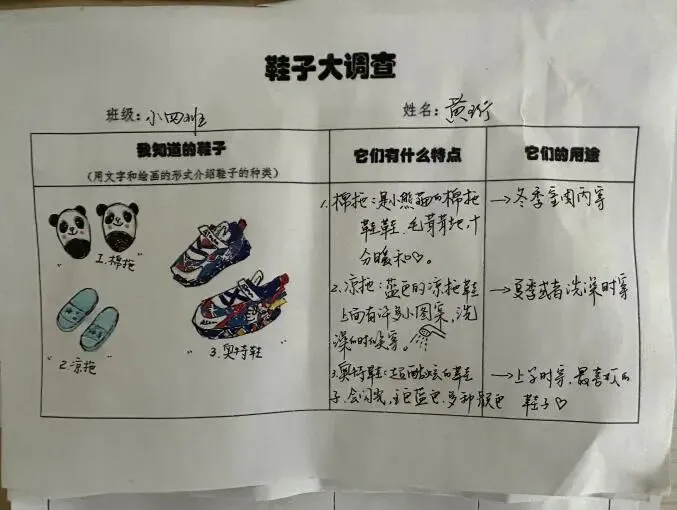 鞋子大调查
班级：小四班 姓名：黄
我知道的鞋子
（用文字和绘画的形式介绍鞋子的种类）
它们有什么特点
它们的用途
"1.棉拖"
"2.凉拖"
"3.奥特鞋"
1.棉拖：是小熊猫的棉拖
鞋鞋，毛茸茸地，十
分暖和♡。
2.凉拖：蓝色的凉拖鞋
上面有许多小图案，洗
澡的时候穿。
3.奥特鞋：超酷炫的鞋
子，会闪光，主色蓝色，多种颜色
→冬季室内穿
→夏季或者洗澡时穿
→上学时穿，最喜欢的
鞋子♡